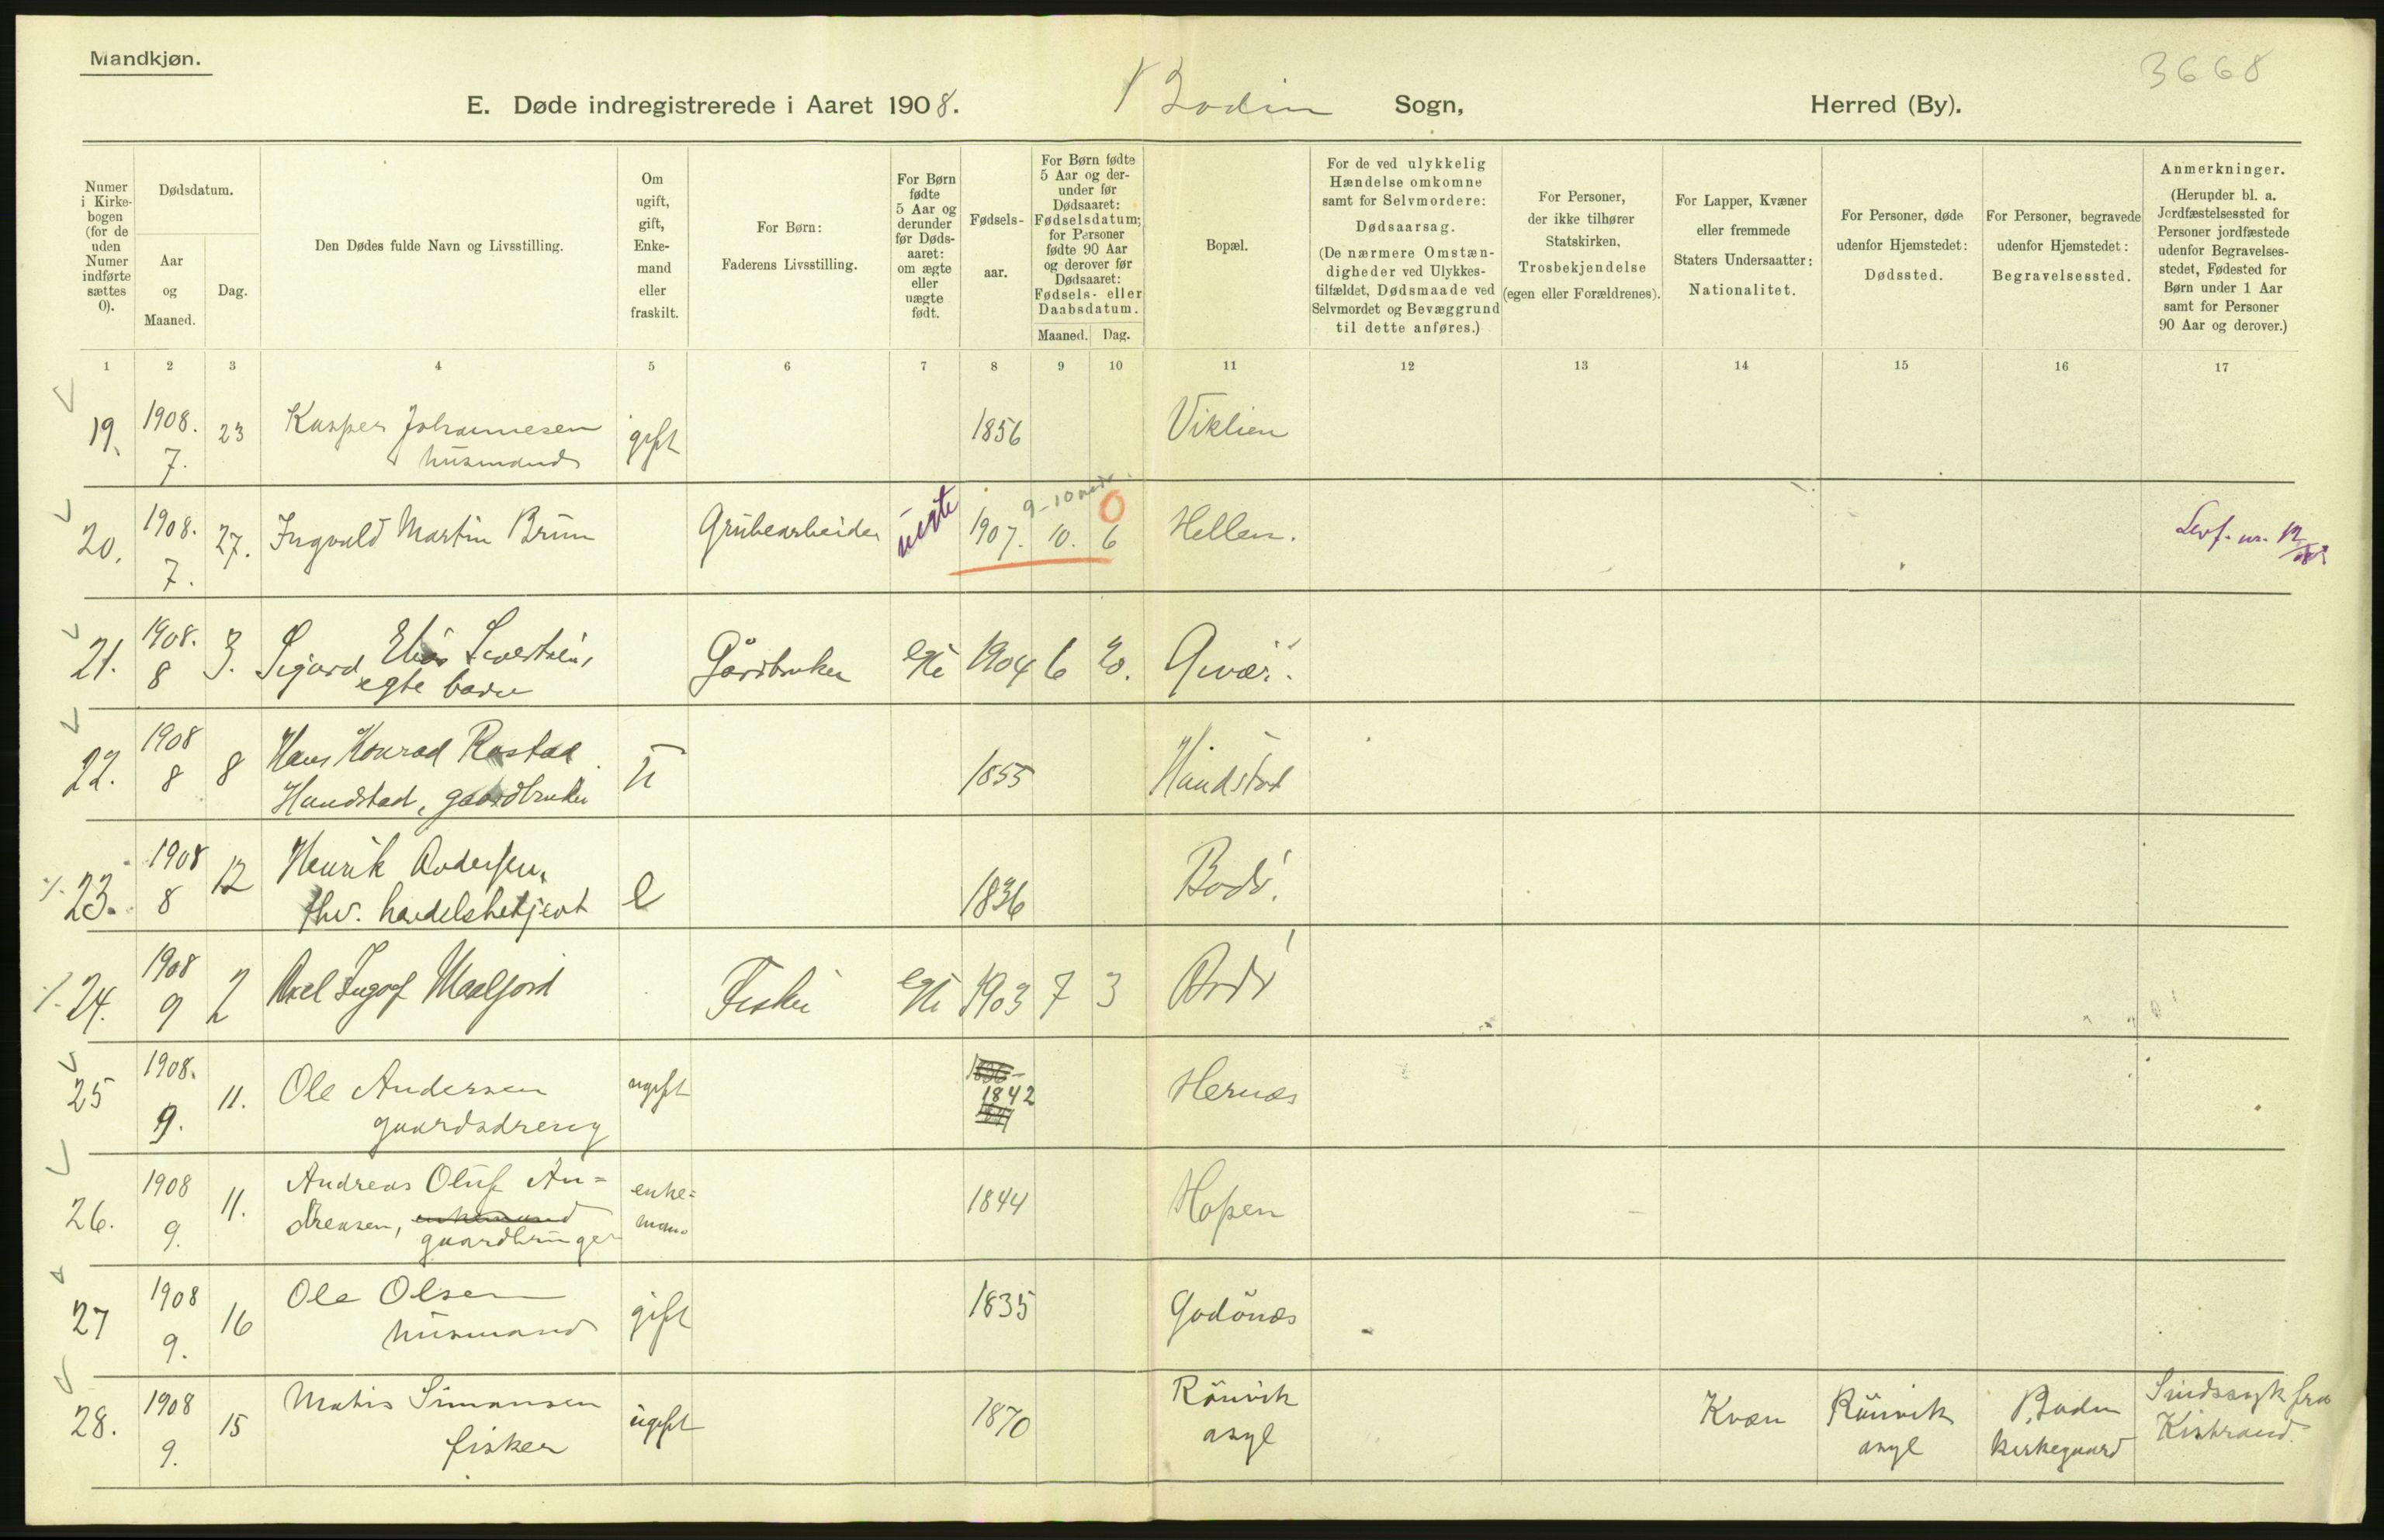 Mandkjøn.
3668
E. Døde indregistrerede i Aaret 1908.
Bodin Sogn, Herred (By).
Numer i Kirkebogen (for de uden Numer indførte sættes 0).
Dødsdatum.
Aar og Maaned.
Dag.
Den Dødes fulde Navn og Livsstilling.
Om ugift, gift, Enkemand eller fraskilt.
For Børn:
Faderens Livsstilling.
For Børn fødte 5 Aar og derunder før Dødsaaret: om ægte eller uægte født.
Fødselsaar.
For Børn fødte 5 Aar og derunder før Dødsaaret: Fødselsdatum; for Personer fødte 90 Aar og derover før Dødsaaret: Fødsels- eller Daabsdatum.
Maaned. Dag.
Bopæl.
For de ved ulykkelig Hændelse omkomne samt for Selvmordere:
Dødsaarsag.
(De nærmere Omstændigheder ved Ulykkestilfældet, Dødsmaade ved Selvmordet og Bevæggrund til dette anføres.)
For Personer, der ikke tilhører Statskirken,
Trosbekjendelse
(egen eller Forældrenes).
For Lapper, Kvæner eller fremmede Staters Undersaatter:
Nationalitet.
For Personer, døde udenfor Hjemstedet:
Dødssted.
For Personer, begravede udenfor Hjemstedet:
Begravelsessted.
Anmerkninger.
(Herunder bl. a. Jordfæstelsessted for Personer jordfæstede udenfor Begravelsesstedet, Fødested for Børn under 1 Aar samt for Personer 90 Aar og derover.)
1 2 3 4 5 6 7 8 9 10 11 12 13 14 15 16 17
19. 1908. 7. 23 Kasper Johannesen husmand gift 1856 Viklien
20. 1908. 7. 27. Ingvald Martin Brun Grubearbeider uegte 1907. 10. 6 9-10 0 Hellen.
21. 1908. 8 3. Sigurd Elias Sivertsen, egte barn Gårdbruker egte 1904 6 20. Givær.
22. 1908 8 8 Hans Konrad Rastad Hundstad, gaardbruker U 1855 Hundstad
23. 1908 8 12 Henrik Andersen, fhv. handelsbetjent e 1836 Bodø.
24. 1908 9 2 Axel Ingolf Maalfjord Fisker egte 1903 7 3 Bodø
25 1908. 9. 11. Ole Andersen gaardsdreng ugift 1842 Hernæs
26. 1908 9. 11. Andreas Oluf Andreasen, enkemand gaardbruger enkemand 1844 Hopen
27 1908 9. 16 Ole Olsen husmand gift 1835 Godønæs
28. 1908 9. 15 Mathis Simonsen fisker ugift 1870 Rønvik asyl Kvæn Rønvik asyl Bodin kirkegaard Sindssyk fra Kistrand.